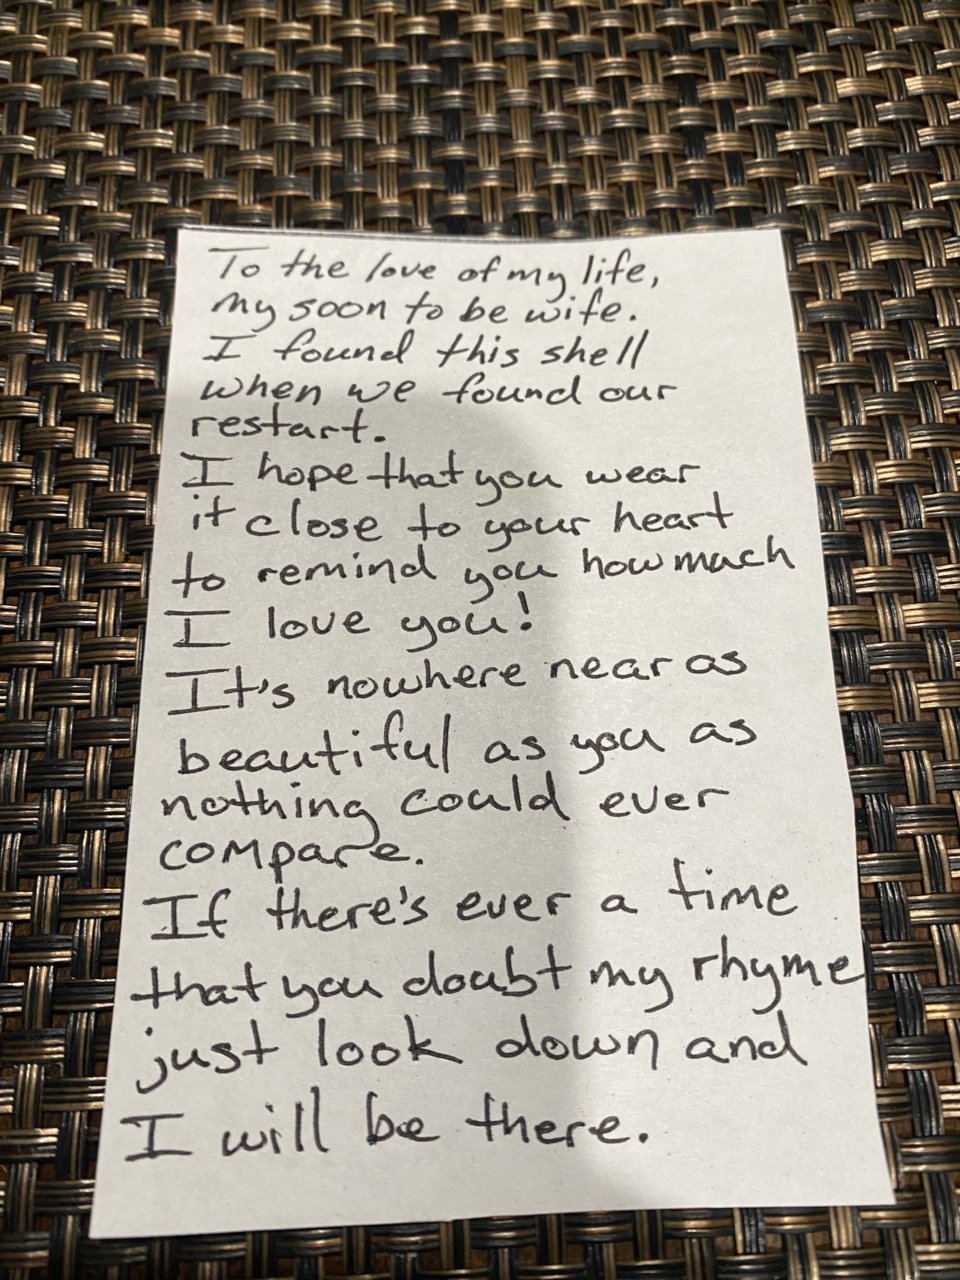 To the love of my life,
my soon to be wife.
I found this shell
when we found our
restart.
I hope that you wear
it close to your heart
to remind you how much
I love you!
It's nowhere near as
beautiful as you as
nothing could ever
compare.
If there's ever a time
that you doubt my rhyme
just look down and
I will be there.